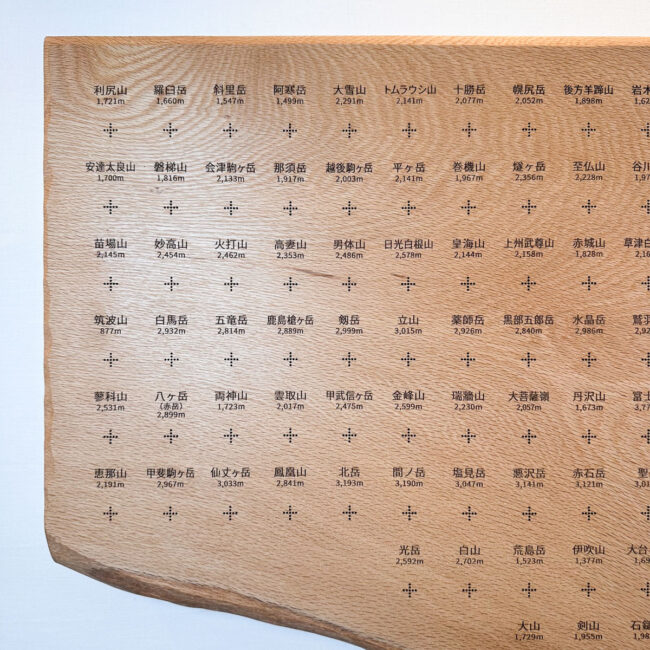 利尻山 羅臼岳 斜里岳 阿寒岳 大雪山 トムラウシ山 十勝岳 幌尻岳 後方羊蹄山 岩木
1,721m 1,660m 1,547m 1,499m 2,291m 2,141m 2,077m 2,052m 1,898m 1,62
安達太良山 磐梯山 会津駒ヶ岳 那須岳 越後駒ヶ岳 平ヶ岳 巻機山 燧ヶ岳 至仏山 谷川
1,700m 1,816m 2,133m 1,917m 2,003m 2,141m 1,967m 2,356m 2,228m 1,97
苗場山 妙高山 火打山 高妻山 男体山 日光白根山 皇海山 上州武尊山 赤城山 草津白
2,145m 2,454m 2,462m 2,353m 2,486m 2,578m 2,144m 2,158m 1,828m 2,16
筑波山 白馬岳 五竜岳 鹿島槍ヶ岳 剱岳 立山 薬師岳 黒部五郎岳 水晶岳 鷲羽
877m 2,932m 2,814m 2,889m 2,999m 3,015m 2,926m 2,840m 2,986m 2,92
蓼科山 八ヶ岳 両神山 雲取山 甲武信ヶ岳 金峰山 瑞牆山 大菩薩嶺 丹沢山 富士
2,531m (赤岳) 1,723m 2,017m 2,475m 2,599m 2,230m 2,057m 1,673m 3,77
2,899m
恵那山 甲斐駒ヶ岳 仙丈ヶ岳 鳳凰山 北岳 間ノ岳 塩見岳 悪沢岳 赤石岳 聖
2,191m 2,967m 3,033m 2,841m 3,193m 3,190m 3,047m 3,141m 3,121m 3,01
光岳 白山 荒島岳 伊吹山 大台
2,592m 2,702m 1,523m 1,377m 1,69
大山 剣山 石鎚
1,729m 1,955m 1,98